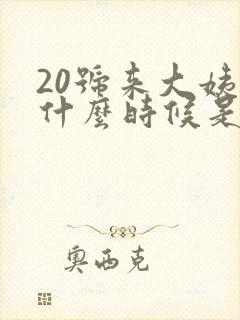 20號來大姨
什麼時候是
奧西克